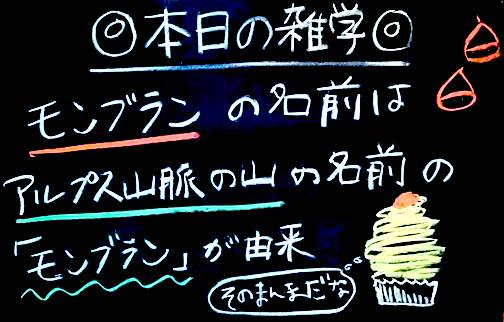 ◎本日の雑学◎
モンブランの名前は
アルプス山脈の山の名前の
「モンブラン」が由来
そのまんまだな